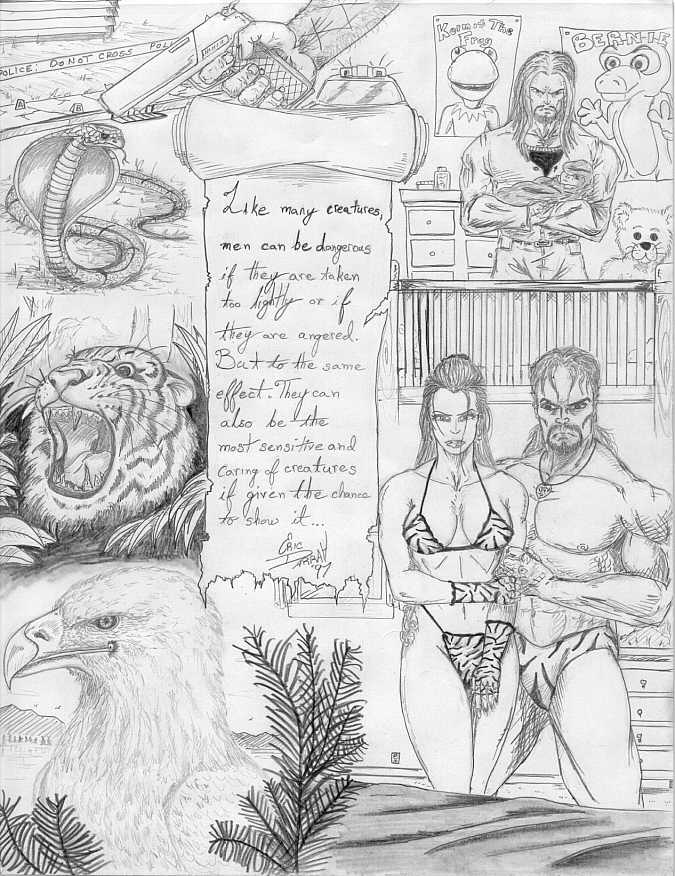 POLICE: DO NOT CROSS POL
A
B
Kermit The
Frog
BERNIE
Like many creatures,
men can be dangerous
if they are taken
too lightly or if
they are angered.
But to the same
effect. They can
also be the
most sensitive and
caring of creatures
if given the chance
to show it...
Eric
'97